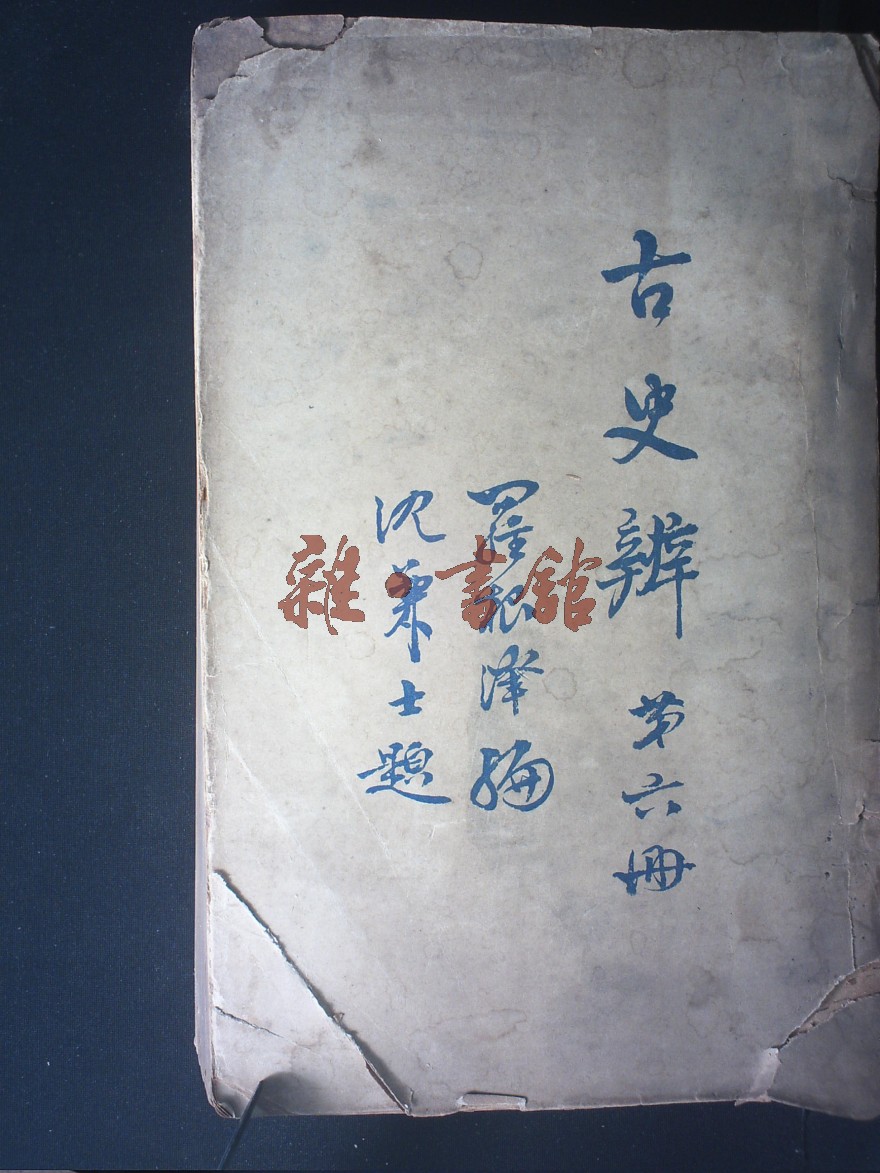 古史辨 第六冊
羅根澤編
沈兼士題
雜·書館